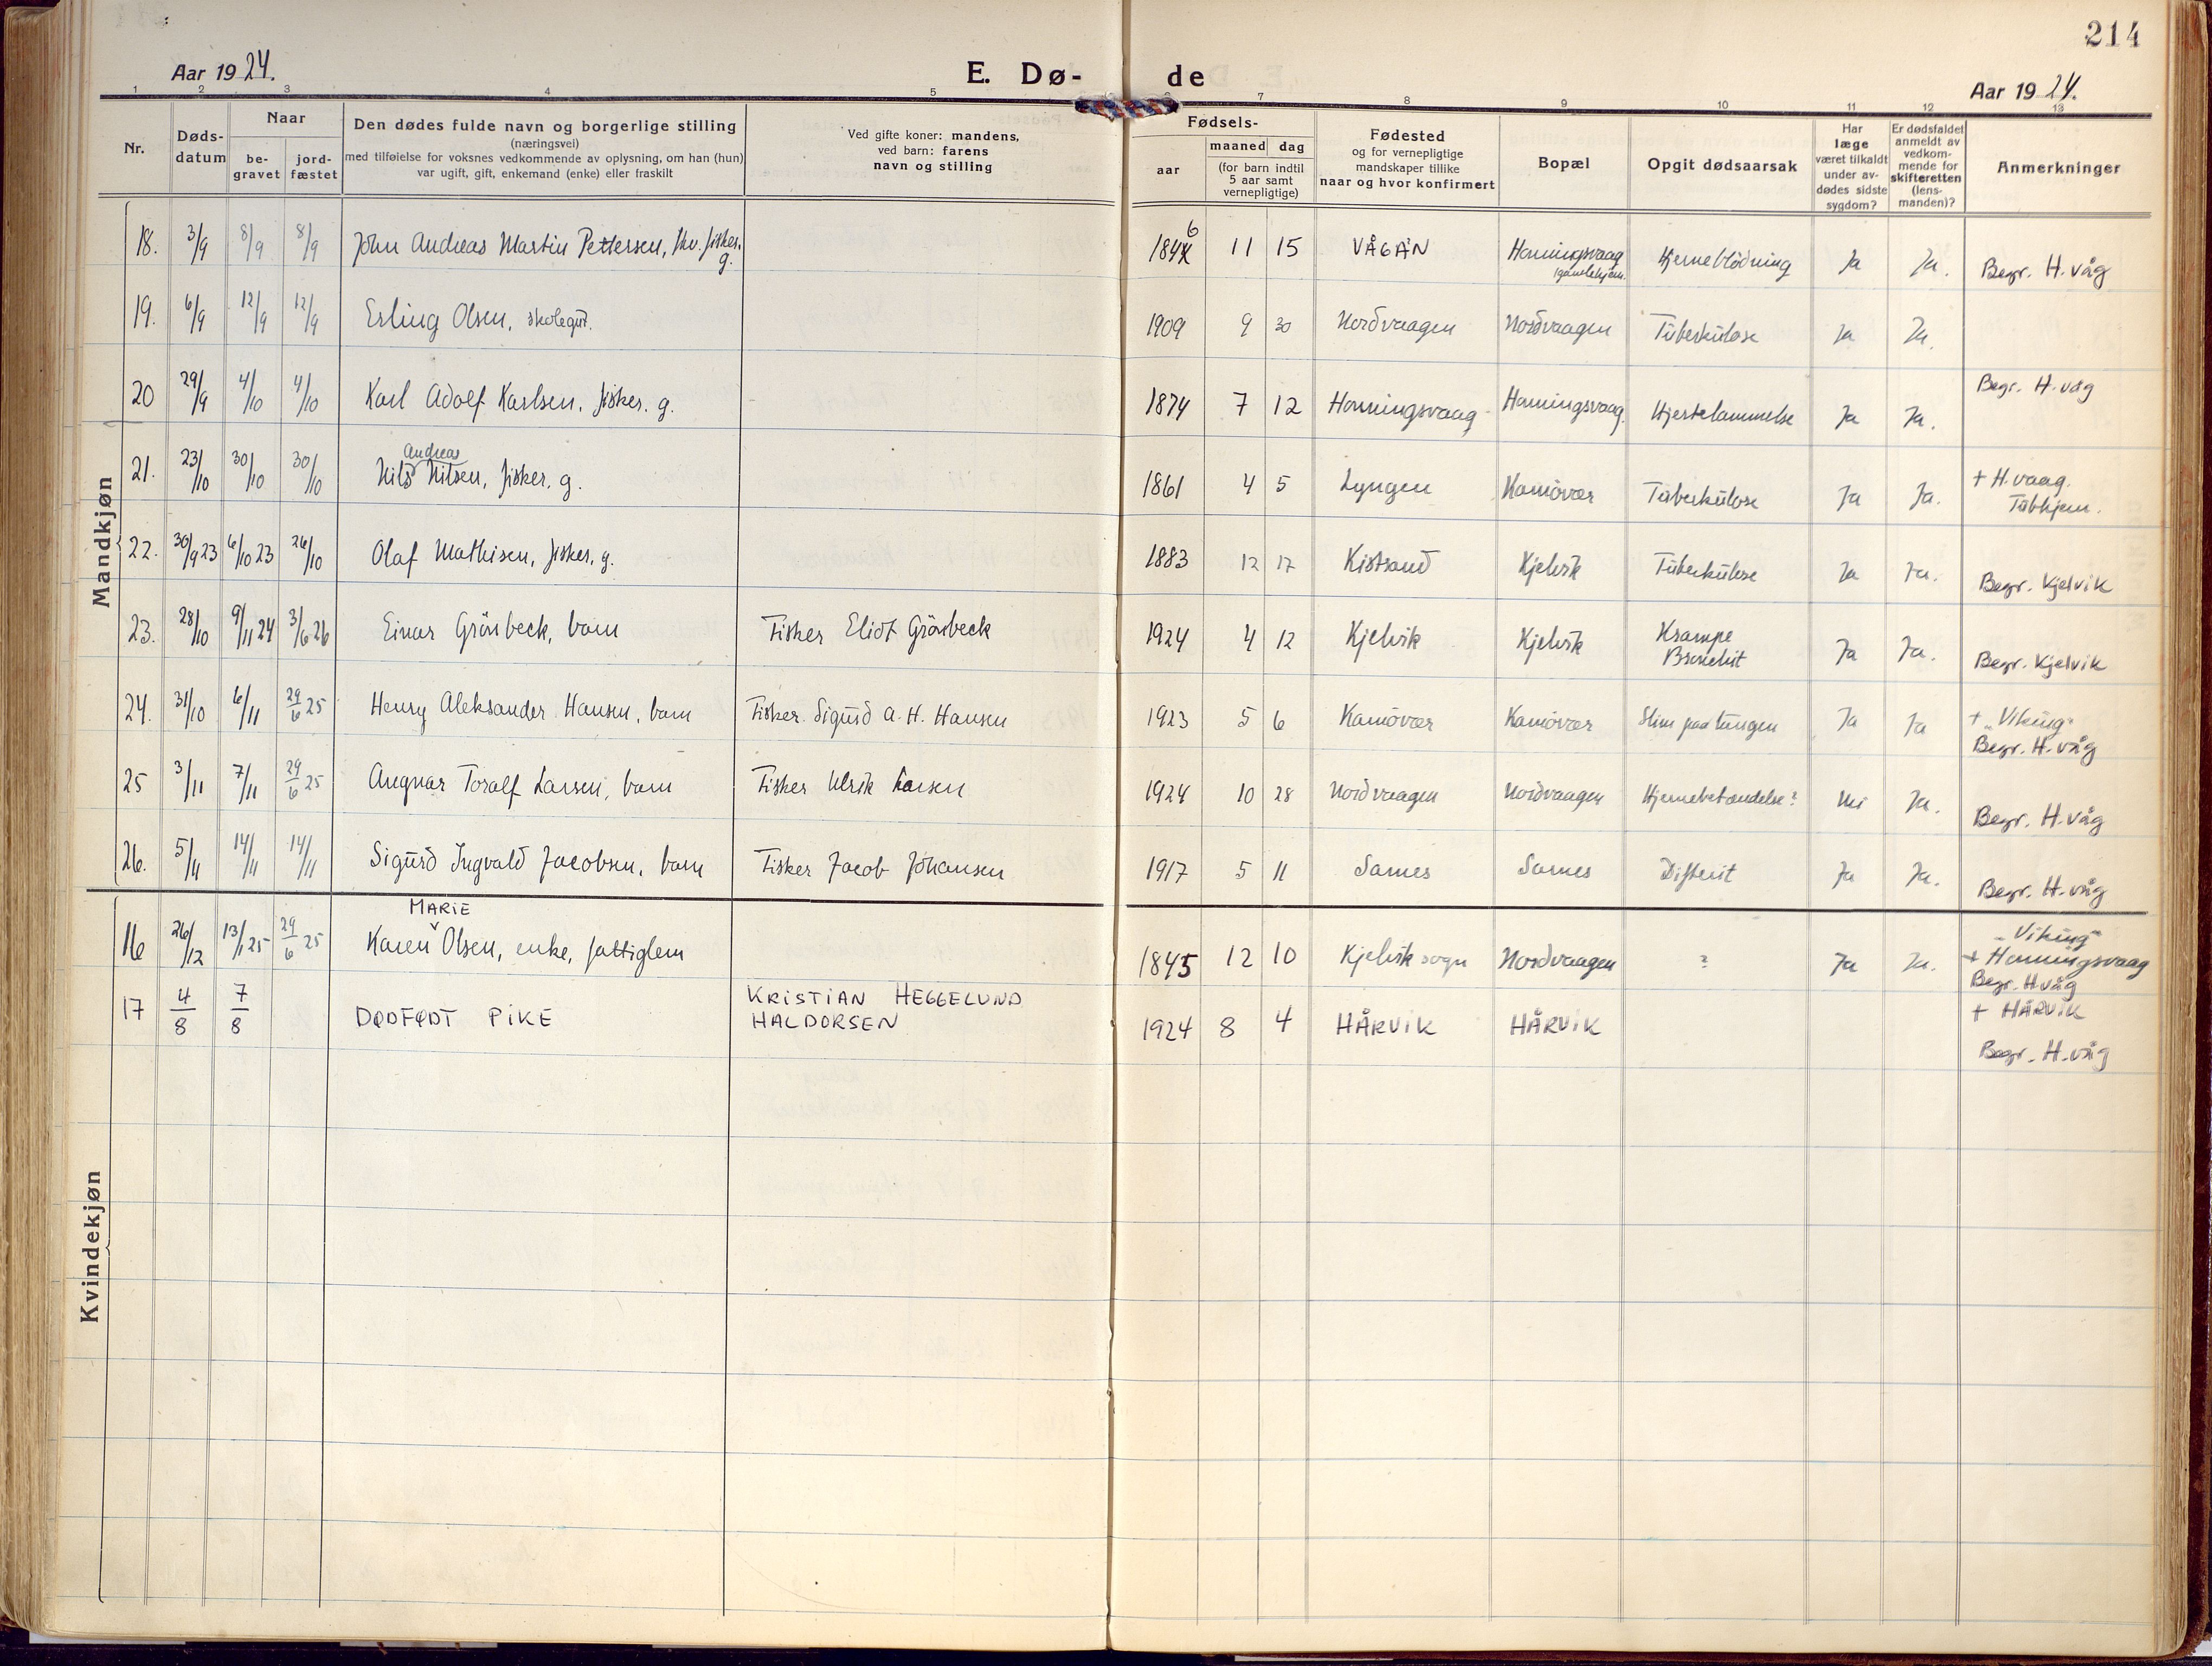 214
Aar 1924.
E. Dø-
de
Aar 1924.
1 2 3 4 5 6 7 8 9 10 11 12 13
Nr.
Døds-
datum
Naar
be-
gravet
jord-
fæstet
Den dødes fulde navn og borgerlige stilling
(næringsvei)
med tilføielse for voksnes vedkommende av oplysning, om han (hun)
var ugift, gift, enkemand (enke) eller fraskilt
Ved gifte koner: mandens,
ved barn: farens
navn og stilling
Fødsels-
aar
maaned dag
(for barn indtil
5 aar samt
vernepligtige)
Fødested
og for vernepligtige
mandskaper tillike
naar og hvor konfirmert
Bopæl
Opgit dødsaarsak
Har
læge
været tilkaldt
under av-
dødes sidste
sygdom?
Er dødsfaldet
anmeldt av
vedkom-
mende for
skifteretten
(lens-
manden)?
Anmerkninger
Mandkjøn
18. 3/9 8/9 8/9 John Andreas Martin Pettersen, fhv. fisker, g. 1846 11 15 VÅGAN Honningsvaag gamlehjem. Hjerneblödning Ja Ja. Begr. H.våg
19. 6/9 12/9 12/9 Erling Olsen, skolegut. 1909 9 30 Nordvaagen Nordvaagen Tuberkulose Ja Ja.
20 29/9 4/10 4/10 Karl Adolf Karlsen, fisker. g. 1874 7 12 Honningsvaag Honningsvaag Hjertelammelse Ja Ja. Begr. H.våg
21. 23/10 30/10 30/10 Nils Andreas Nilsen, fisker, g. 1861 4 5 Lyngen Kamövær Tuberkulose Ja Ja. + H.vaag. Tubhjem.
22. 30/9 23 6/10 23 26/10 Olaf Mathisen, fisker, g. 1883 12 17 Kistrand Kjelvik Tuberkulose Ja Ja. Begr. Kjelvik
23. 28/10 9/11 24 3/6 26 Einar Grönbeck, barn Fisker Eliot Grönbeck 1924 4 12 Kjelvik Kjelvik Krampe Bronchit Ja Ja. Begr. Kjelvik
24. 31/10 6/11 29/6 25 Henry Aleksander Hansen, barn Fisker Sigurd A. H. Hansen 1923 5 6 Kamövær Kamövær Slim paa lungen Ja Ja + "Viking" Begr. H.våg
25 3/11 7/11 29/6 25 Toralf Larsen, barn Fisker Ulrik Larsen 1924 10 28 Nordvaagen Nordvaagen Hjernebetændelse? Nei Ja. Begr. H.våg
26. 5/11 14/11 14/11 Sigurd Ingvald Jacobsen, barn Fisker Jacob Johansen 1917 5 11 Sarnes Sarnes Difterit Ja Ja. Begr. H.våg
Kvindekjøn
16 26/12 13/1 25 29/6 25 Karen MARIE Olsen, enke, fattiglem 1845 12 10 Kjelvik sogn Nordvaagen ? Ja Ja. "Viking" + Honningsvaag Begr. H.våg
17 4/8 7/8 DØDFØDT PIKE KRISTIAN HEGGELUND HALDORSEN 1924 8 4 HÅRVIK HÅRVIK + HÅRVIK Begr. H.våg